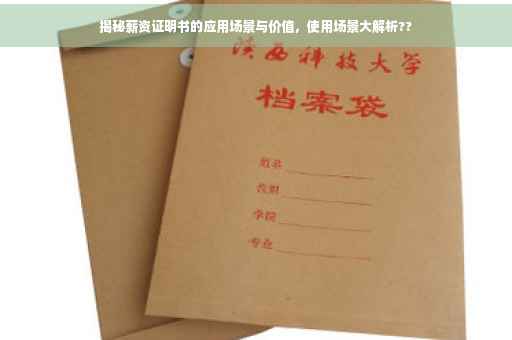 揭秘薪资证明书的应用场景与价值，使用场景大解析??
陕西科技大学
档案袋
姓名
学院
专业